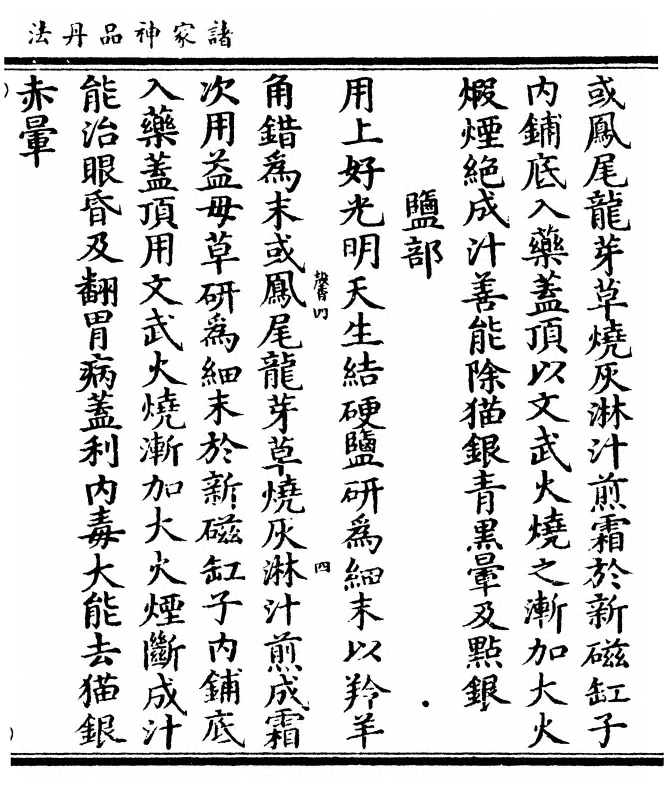 諸家神品丹法
或鳳尾龍芽草燒灰淋汁煎霜於新磁缸子
内鋪底入藥蓋頂以文武火燒之漸加大火
煅煙絕成汁善能除猫銀青黑暈及點銀
鹽部
用上好光明天生結硬鹽研爲細末以羚羊
角錯爲末或鳳尾龍芽草燒灰淋汁煎成霜
馨四
四
次用益母草研爲細末於新磁缸子内鋪底
入藥蓋頂用文武火燒漸加大火煙斷成汁
能治眼昏及翻胃病蓋利内毒大能去猫銀
赤暈